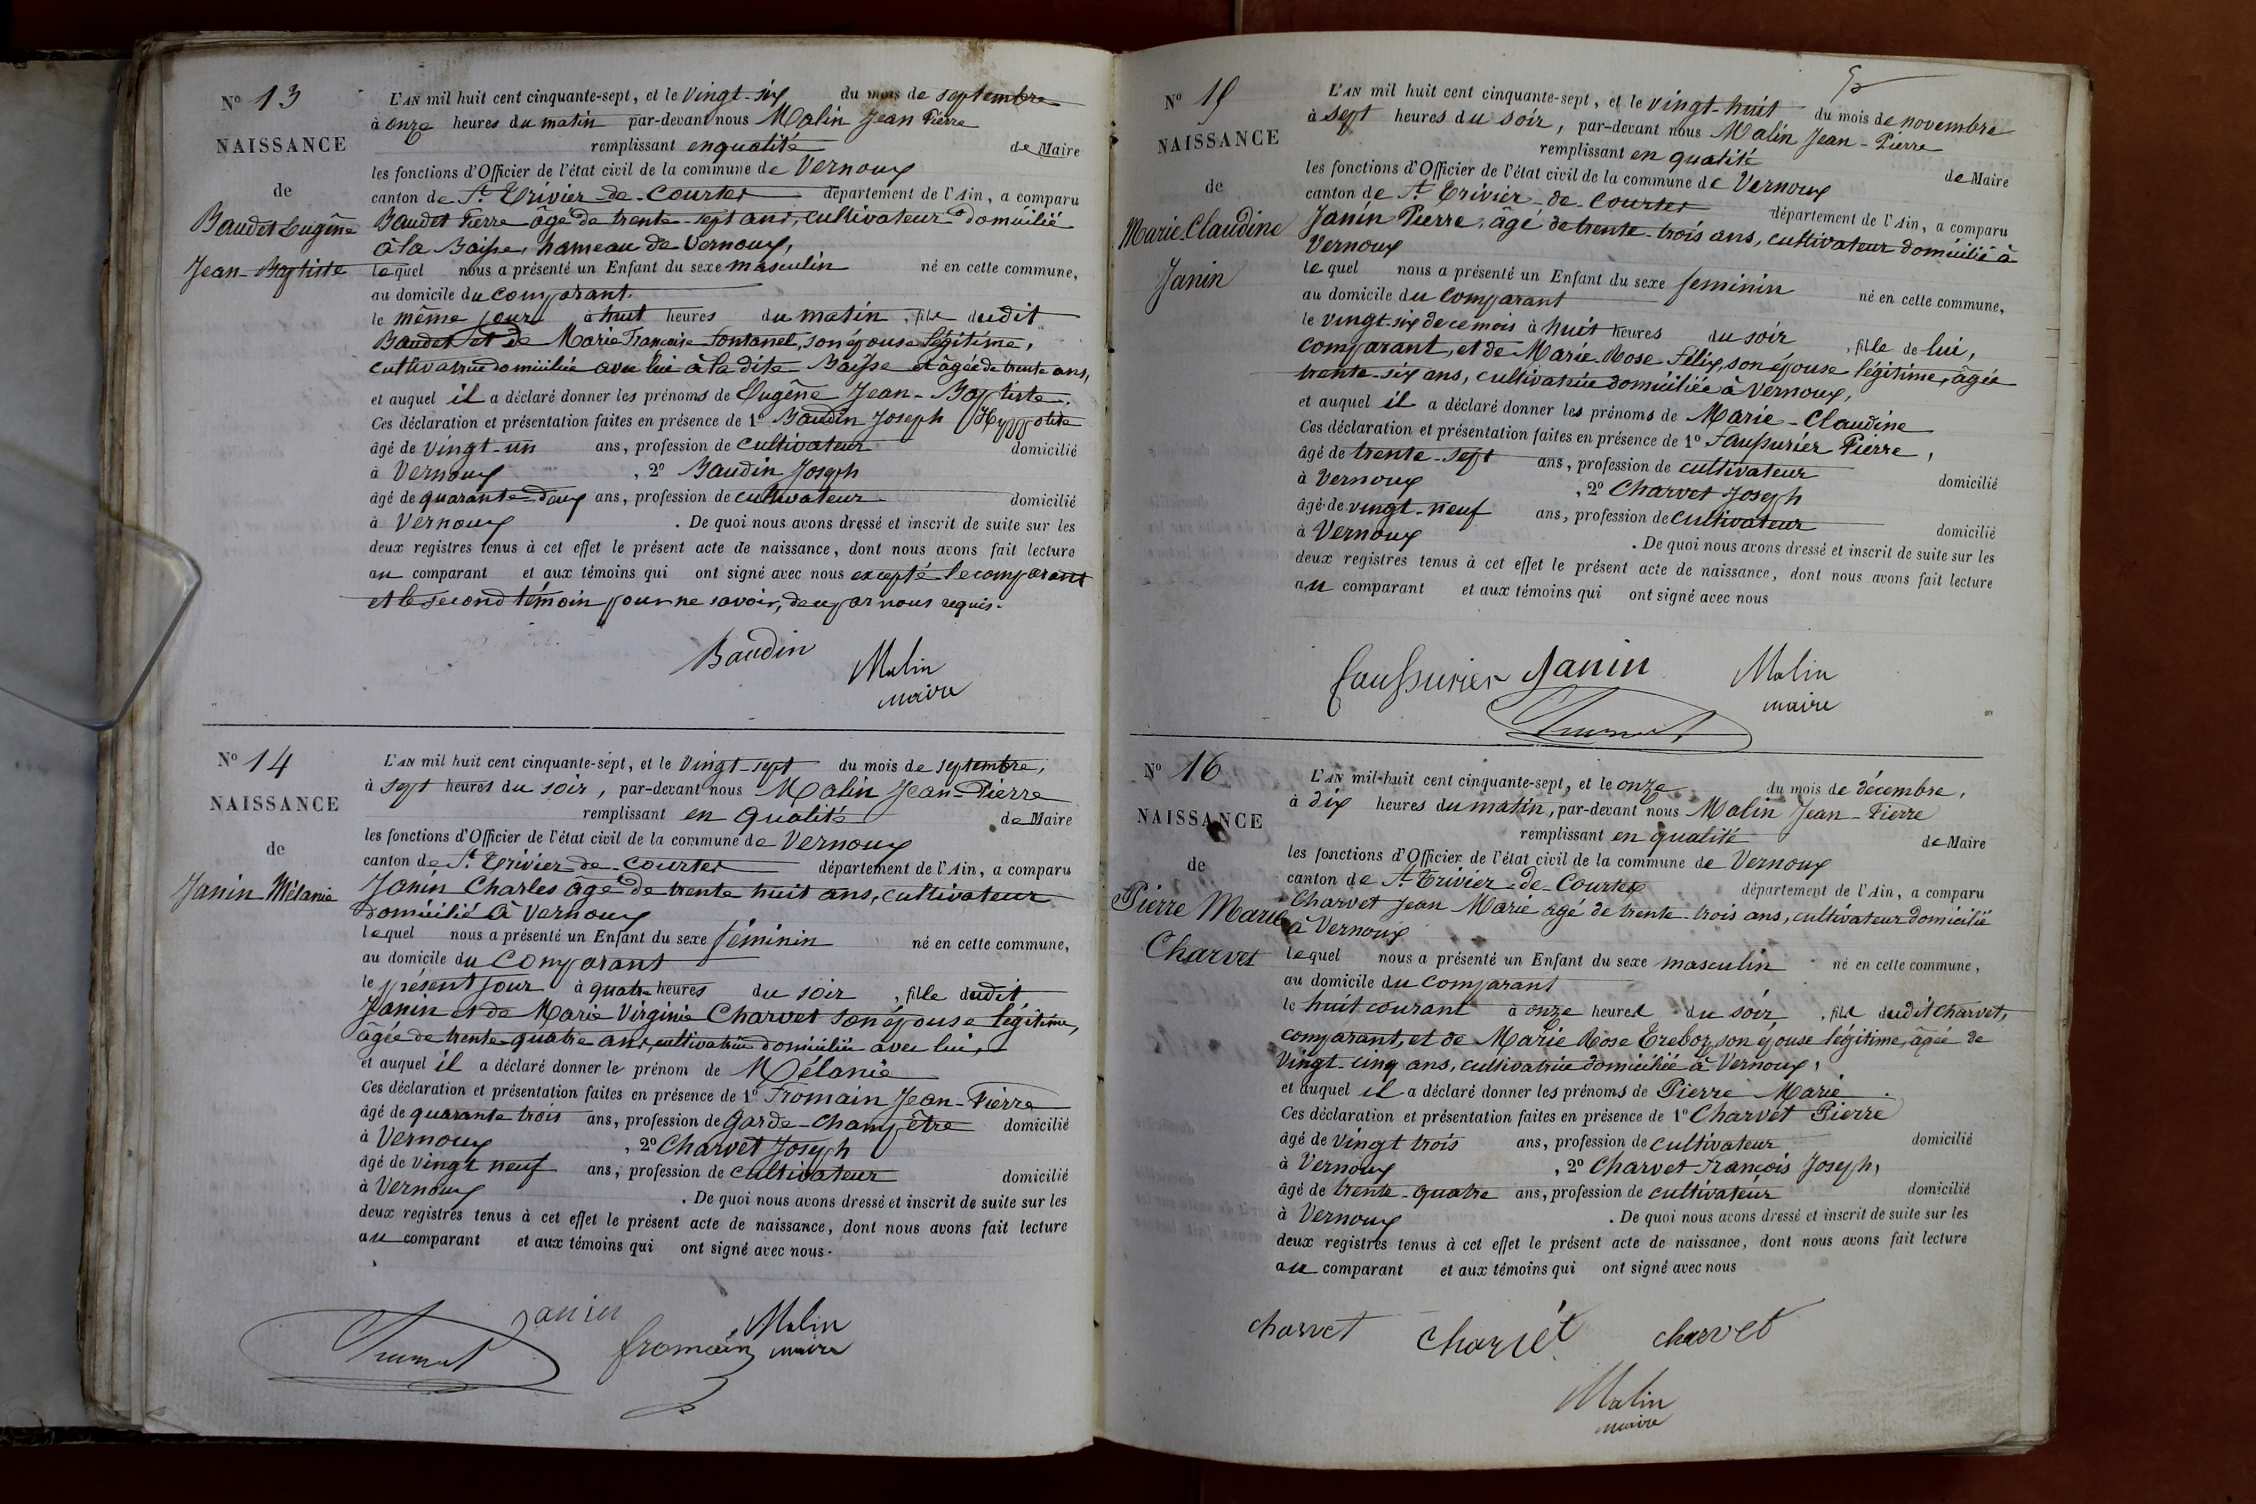 N° 13
NAISSANCE
de
Baudet Eugène
Jean-Baptiste
L'AN mil huit cent cinquante-sept, et le vingt-six du mois de septembre
à onze heures du matin par-devant nous Malin Jean Pierre
remplissant en qualité de Maire
les fonctions d'Officier de l'état civil de la commune de Vernoux
canton de St Trivier-de-Courtes département de l'Ain, a comparu
Baudet Pierre âgé de trente-sept ans, cultivateur domicilié
à la Baisse, hameau de Vernoux,
lequel nous a présenté un Enfant du sexe masculin né en cette commune,
au domicile du comparant.
le même jour à huit heures du matin, fils dudit
Baudet et de Marie Françoise Fontanel, son épouse légitime,
cultivatrice domiciliée avec lui à la dite Baisse et âgée de trente ans,
et auquel il a déclaré donner les prénoms de Eugène Jean-Baptiste.
Ces déclaration et présentation faites en présence de 1° Baudin Joseph Hyppolite
âgé de vingt-un ans, profession de cultivateur domicilié
à Vernoux, 2° Baudin Joseph
âgé de quarante-deux ans, profession de cultivateur domicilié
à Vernoux. De quoi nous avons dressé et inscrit de suite sur les
deux registres tenus à cet effet le présent acte de naissance, dont nous avons fait lecture
au comparant et aux témoins qui ont signé avec nous excepté le comparant
et le second témoin pour ne savoir, de ce par nous requis.
Baudin
Malin
maire
N° 14
NAISSANCE
de
Janin Mélanie
L'AN mil huit cent cinquante-sept, et le vingt-sept du mois de septembre,
à sept heures du soir, par-devant nous Malin Jean-Pierre
remplissant en qualité de Maire
les fonctions d'Officier de l'état civil de la commune de Vernoux
canton de St Trivier-de-Courtes département de l'Ain, a comparu
Janin Charles âgé de trente huit ans, cultivateur
domicilié à Vernoux
lequel nous a présenté un Enfant du sexe féminin né en cette commune,
au domicile du comparant
le présent jour à quatre heures du soir, fille dudit
Janin et de Marie Virginie Charvet son épouse légitime,
âgée de trente-quatre ans, cultivatrice domiciliée avec lui,
et auquel il a déclaré donner le prénom de Mélanie
Ces déclaration et présentation faites en présence de 1° Fromain Jean-Pierre
âgé de quarante trois ans, profession de Garde-Champêtre domicilié
à Vernoux, 2° Charvet Joseph
âgé de vingt neuf ans, profession de cultivateur domicilié
à Vernoux. De quoi nous avons dressé et inscrit de suite sur les
deux registres tenus à cet effet le présent acte de naissance, dont nous avons fait lecture
au comparant et aux témoins qui ont signé avec nous.
Janin
Malin
fromain maire
N° 15
NAISSANCE
de
Marie-Claudine
Janin
L'AN mil huit cent cinquante-sept, et le vingt-huit du mois de novembre
à sept heures du soir, par-devant nous Malin Jean-Pierre
remplissant en qualité de Maire
les fonctions d'Officier de l'état civil de la commune de Vernoux
canton de St Trivier-de-Courtes département de l'Ain, a comparu
Janin Pierre, âgé de trente-trois ans, cultivateur domicilié à
Vernoux
lequel nous a présenté un Enfant du sexe feminin né en cette commune,
au domicile du comparant
le vingt-six de ce mois à huit heures du soir, fille de lui,
comparant, et de Marie-Rose Félix, son épouse légitime, âgée
trente-six ans, cultivatrice domiciliée à Vernoux,
et auquel il a déclaré donner les prénoms de Marie-Claudine
Ces déclaration et présentation faites en présence de 1° Faussurier Pierre,
âgé de trente-sept ans, profession de cultivateur domicilié
à Vernoux, 2° Charvet Joseph
âgé de vingt-neuf ans, profession de cultivateur domicilié
à Vernoux. De quoi nous avons dressé et inscrit de suite sur les
deux registres tenus à cet effet le présent acte de naissance, dont nous avons fait lecture
au comparant et aux témoins qui ont signé avec nous
Faussurier Janin Malin
maire
N° 16
NAISSANCE
de
Pierre Marie
Charvet
L'AN mil-huit cent cinquante-sept, et le onze du mois de décembre,
à dix heures du matin, par-devant nous Malin Jean-Pierre
remplissant en qualité de Maire
les fonctions d'Officier de l'état civil de la commune de Vernoux
canton de St Trivier-de-Courtes département de l'Ain, a comparu
Charvet Jean Marie agé de trente-trois ans, cultivateur domicilié
à Vernoux
lequel nous a présenté un Enfant du sexe masculin né en cette commune,
au domicile du comparant
le huit courant à onze heures du soir, fils dudit Charvet,
comparant, et de Marie Rose Treboz, son épouse légitime, âgée de
vingt-cinq ans, cultivatrice domiciliée à Vernoux,
et auquel il a déclaré donner les prénoms de Pierre Marie.
Ces déclaration et présentation faites en présence de 1° Charvet Pierre
âgé de vingt trois ans, profession de cultivateur domicilié
à Vernoux, 2° Charvet François Joseph,
âgé de trente-quatre ans, profession de cultivateur domicilié
à Vernoux. De quoi nous avons dressé et inscrit de suite sur les
deux registres tenus à cet effet le présent acte de naissance, dont nous avons fait lecture
au comparant et aux témoins qui ont signé avec nous
charvet charvet charvet
Malin
maire